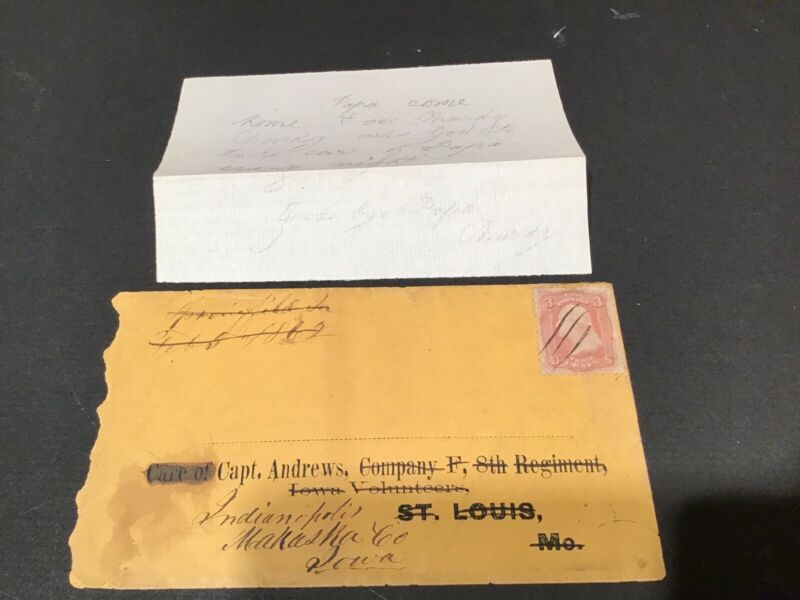 Papa come
home & see
God
take care of Papa
every night
Good bye Papa
Springfield
Feb 8 1862
3 3
Care of Capt. Andrews, Company F, 8th Regiment,
Iowa Volunteers,
Indianopolis ST. LOUIS,
Mahaska Co Mo.
Iowa